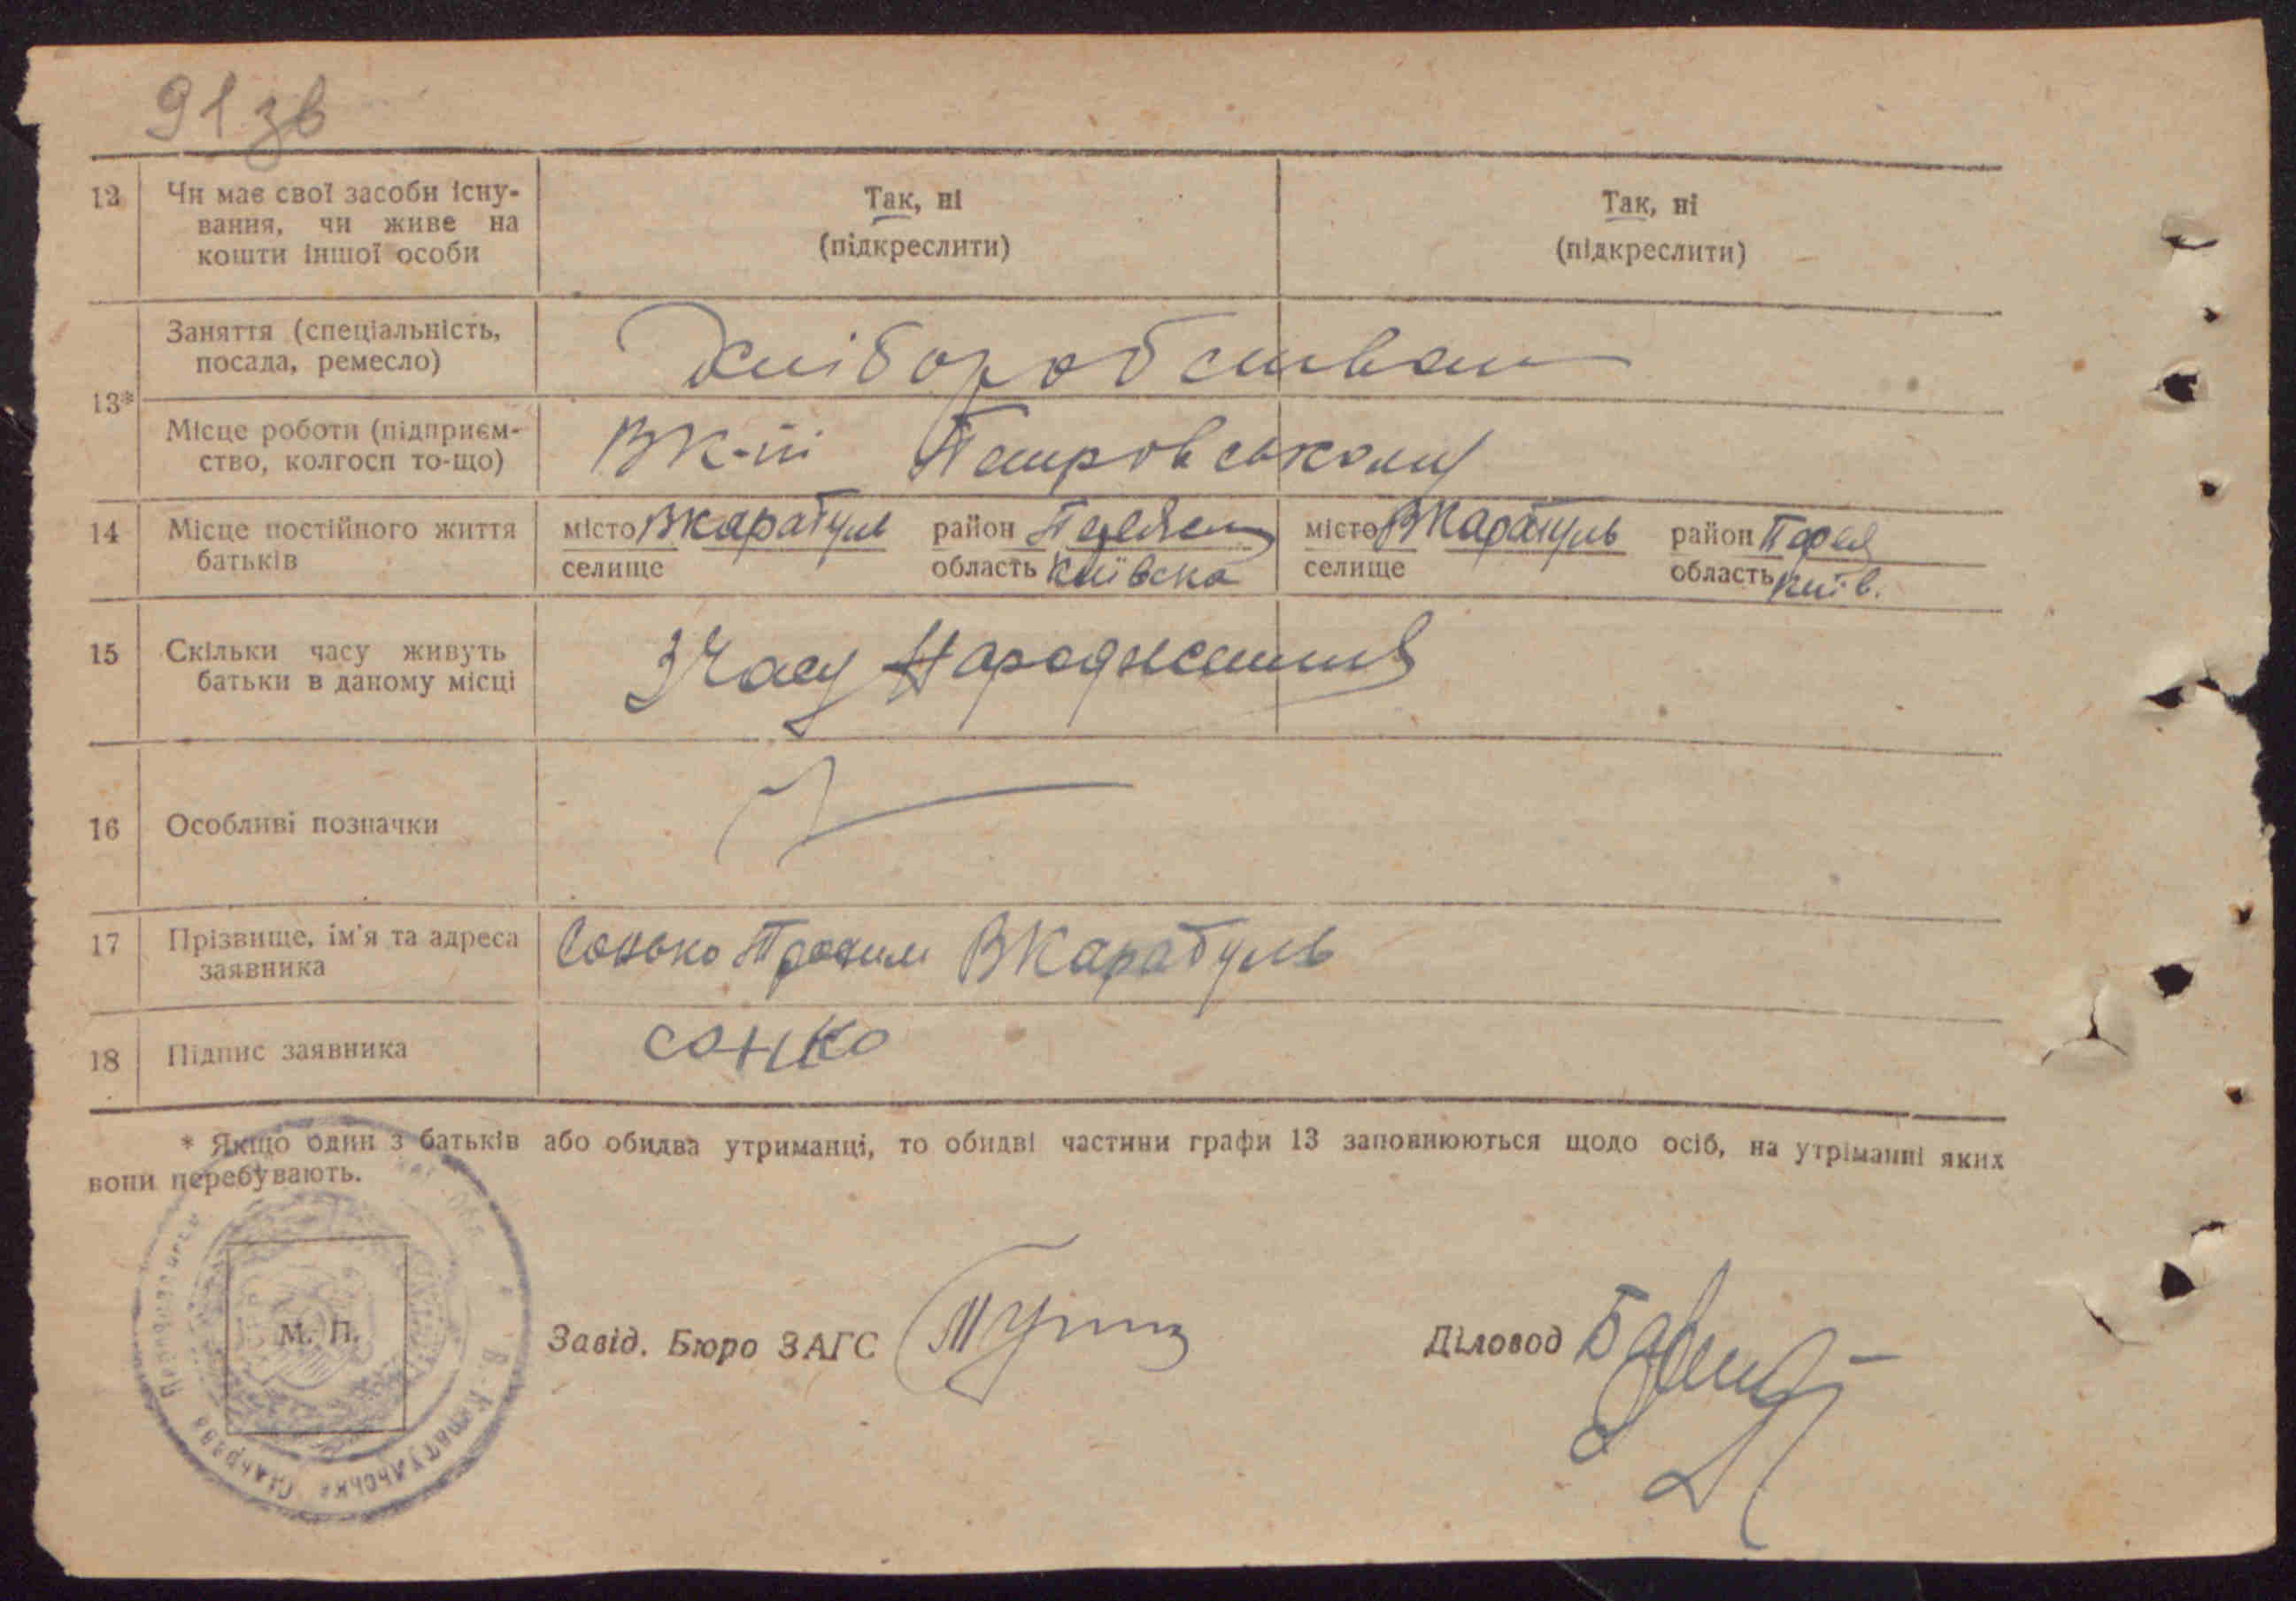 91 зв
12 Чи має свої засоби існу-
вання, чи живе на
кошти іншої особи
Так, ні
(підкреслити)
Так, ні
(підкреслити)
13*
Заняття (спеціальність,
посада, ремесло)
Місце роботи (підприєм-
ство, колгосп то-що)
Петровському
14 Місце постійного життя
батьків
місто ВКаратуль район
селище область Київська
місто ВКаратуль район Перея
селище область Київ.
15 Скільки часу живуть
батьки в даному місці
З Часу Народження
16 Особливі позначки
17 Прізвище, ім'я та адреса
заявника
Сонько ВКаратуль
18 Підпис заявника
сонко
* Якщо один з батьків або обидва утриманці, то обидві частини графи 13 заповнюються щодо осіб, на утріманні яких
вони перебувають.
М. П.
В-Каратульська Сільрада
Завід. Бюро ЗАГС
Діловод